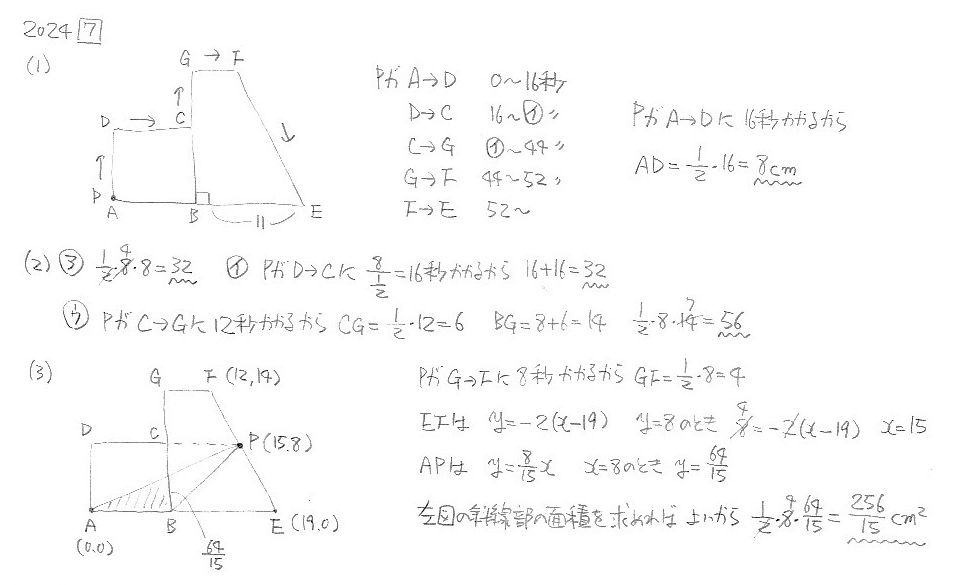 2024 7
(1)
G → F
D → C
↑
↑
↓
P
A
B
11
E
PがA→D 0~16秒
D→C 16~イ〃
C→G イ~44〃
G→F 44~52〃
F→E 52~
PがA→Dに16秒かかるから
AD=1/2・16=8cm
(2) ア 1/2・8・8=32 イ PがD→Cに 8/(1/2)=16秒かかるから 16+16=32
ウ PがC→Gに12秒かかるから CG=1/2・12=6 BG=8+6=14 1/2・8・14=56
(3)
G F(12,14)
D C P(15.8)
A B E(19.0)
(0.0)
64/15
PがG→Fに8秒かかるから GF=1/2・8=4
EFは y=-2(x-19) y=8のとき 8=-2(x-19) x=15
APは y=8/15x x=8のとき y=64/15
左図の斜線部の面積を求めればよいから 1/2・8・64/15=256/15cm²